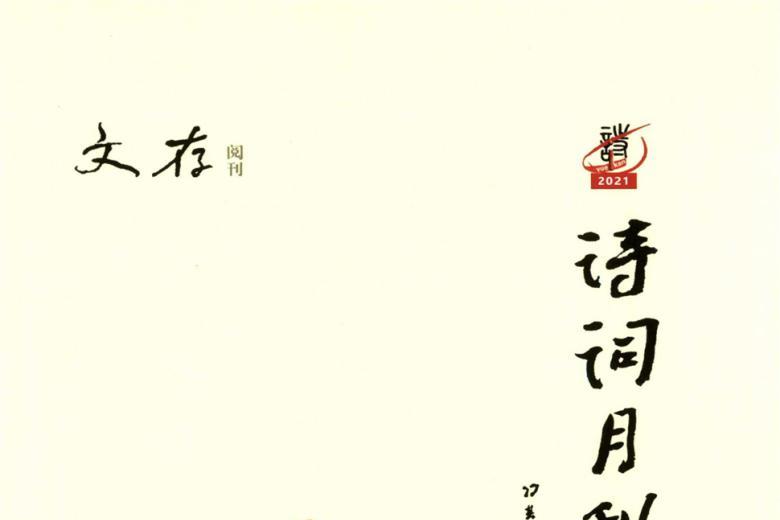 文存
阅刊
2021
诗词月刊